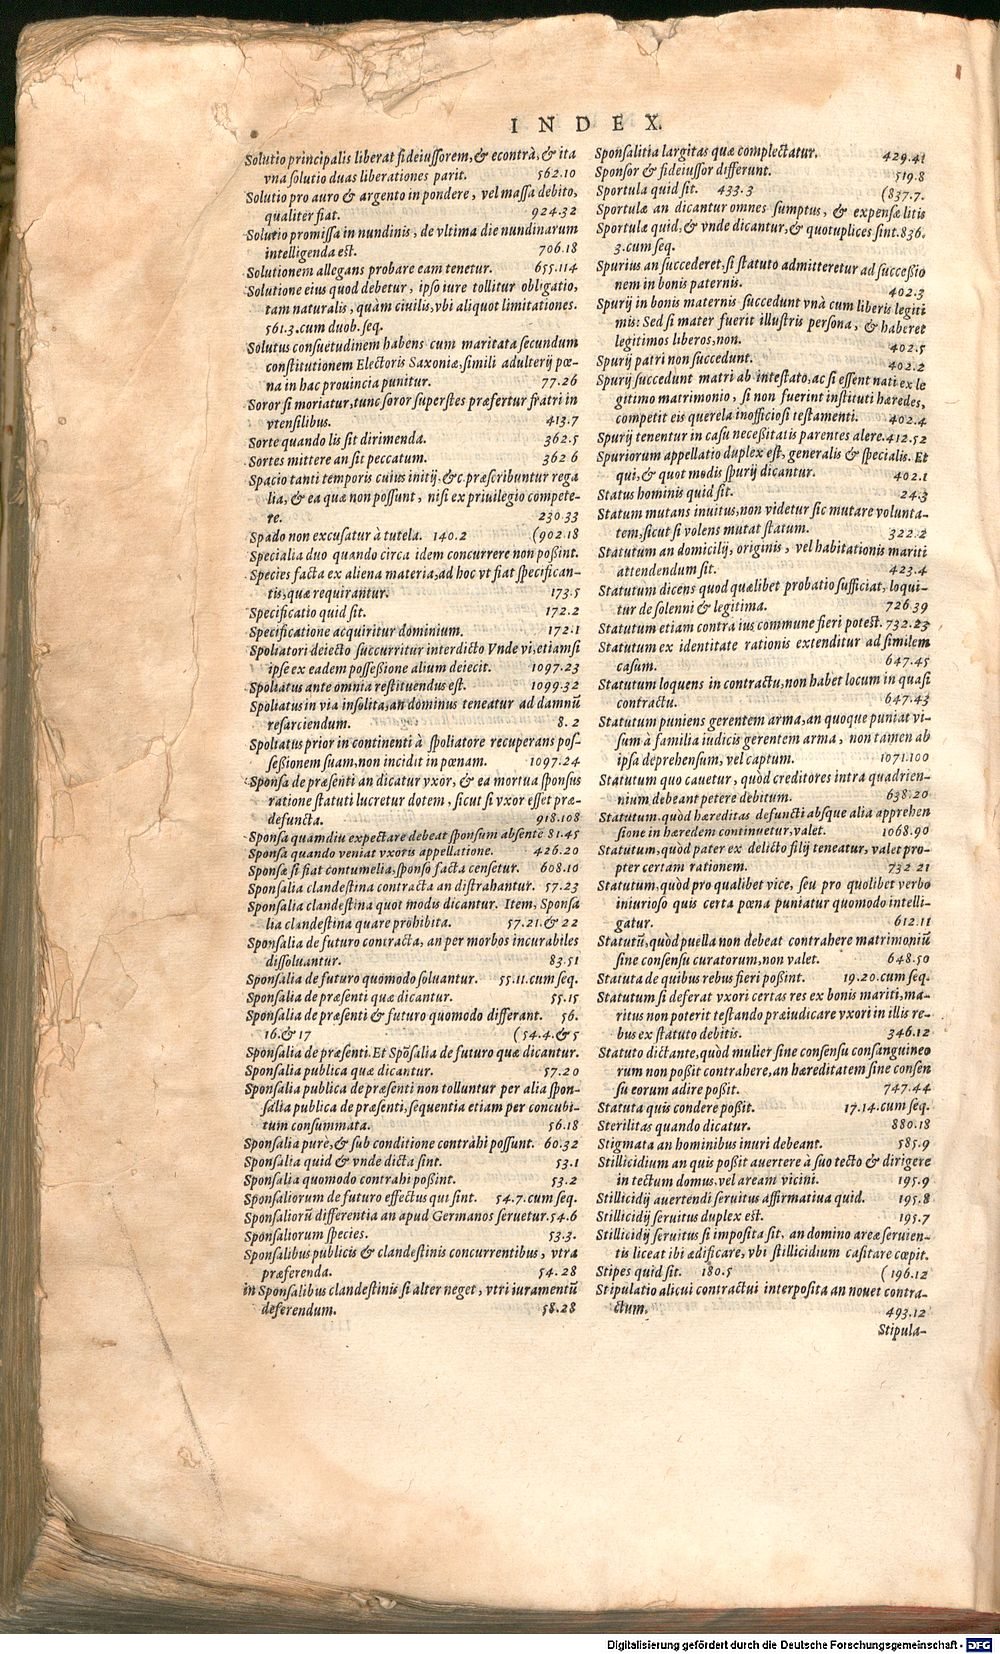 INDEX.
Solutio principalis liberat fideiussorem, & econtrà, & ita
vna solutio duas liberationes parit. 562.10
Solutio pro auro & argento in pondere, vel massa debito,
qualiter fiat. 924.32
Solutio promissa in nundinis, de vltima die nundinarum
intelligenda est. 706.18
Solutionem allegans probare eam tenetur. 655.114
Solutione eius quod debetur, ipso iure tollitur obligatio,
tam naturalis, quàm ciuilis, vbi aliquot limitationes.
561.3.cum duob. seq.
Solutus consuetudinem habens cum maritata secundum
constitutionem Electoris Saxoniæ, simili adulterij pœ-
na in hac prouincia punitur. 77.26
Soror si moriatur, tunc soror superstes præfertur fratri in
vtensilibus. 413.7
Sorte quando lis sit dirimenda. 362.5
Sortes mittere an sit peccatum. 362 6
Spacio tanti temporis cuius initij. &c. præscribuntur rega
lia, & ea quæ non possunt, nisi ex priuilegio compete-
re. 230.33
Spado non excusatur à tutela. 140.2 (902.18
Specialia duo quando circa idem concurrere non poßint.
Species facta ex aliena materia, ad hoc vt fiat specifican-
tis, quæ requirantur. 173.5
Specificatio quid sit. 172.2
Specificatione acquiritur dominium. 172.1
Spoliatori deiecto succurritur interdicto Vnde vi, etiamsi
ipse ex eadem possessione alium deiecit. 1097.23
Spoliatus ante omnia restituendus est. 1099.32
Spoliatus in via insolita, an dominus teneatur ad damnū
resarciendum. 8.2
Spoliatus prior in continenti à spoliatore recuperans pos-
seßionem suam, non incidit in pœnam. 1097.24
Sponsa de præsenti an dicatur vxor, & ea mortua sponsus
ratione statuti lucretur dotem, sicut si vxor esset præ-
defuncta. 918.108
Sponsa quamdiu expectare debeat sponsum absentē 81.45
Sponsa quando veniat vxoris appellatione. 426.20
Sponsæ si fiat contumelia, sponso facta censetur. 608.10
Sponsalia clandestina contracta an distrahantur. 57.23
Sponsalia clandestina quot modis dicantur. Item, Sponsa
lia clandestina quare prohibita. 57.21.& 22
Sponsalia de futuro contracta, an per morbos incurabiles
dissoluantur. 83.51
Sponsalia de futuro quomodo soluantur. 55.11.cum seq.
Sponsalia de præsenti quæ dicantur. 55.15
Sponsalia de præsenti & futuro quomodo differant. 56.
16.& 17 (54.4.& 5
Sponsalia de præsenti. Et Spōsalia de futuro quæ dicantur.
Sponsalia publica quæ dicantur. 57.20
Sponsalia publica de præsenti non tolluntur per alia spon-
salia publica de præsenti, sequentia etiam per concubi-
tum consummata. 56.18
Sponsalia purè, & sub conditione contrahi possunt. 60.32
Sponsalia quid & vnde dicta sint. 53.1
Sponsalia quomodo contrahi poßint. 53.2
Sponsaliorum de futuro effectus qui sint. 54.7.cum seq.
Sponsaliorū differentia an apud Germanos seruetur. 54.6
Sponsaliorum species. 53.3.
Sponsalibus publicis & clandestinis concurrentibus, vtra
præferenda. 54.28
in Sponsalibus clandestinis si alter neget, vtri iuramentū
deferendum. 58.28
Sponsalitia largitas quæ complectatur. 429.41
Sponsor & fideiussor differunt. 519.8
Sportula quid sit. 433.3 (837.7.
Sportulæ an dicantur omnes sumptus, & expensæ litis
Sportula quid, & vnde dicantur, & quotuplices sint. 836.
3.cum seq.
Spurius an succederet, si statuto admitteretur ad succeßio
nem in bonis paternis. 402.3
Spurij in bonis maternis succedunt vnà cum liberis legiti
mis: Sed si mater fuerit illustris persona, & haberet
legitimos liberos, non. 402.5
Spurij patri non succedunt. 402.2
Spurij succedunt matri ab intestato, ac si essent nati ex le
gitimo matrimonio, si non fuerint instituti hæredes,
competit eis querela inofficiosi testamenti. 402.4
Spurij tenentur in casu necessitatis parentes alere. 412.52
Spuriorum appellatio duplex est, generalis & specialis. Et
qui, & quot modis spurij dicantur. 402.1
Status hominis quid sit. 24.3
Statum mutans inuitus, non videtur sic mutare volunta-
tem, sicut si volens mutat statum. 322.2
Statutum an domicilij, originis, vel habitationis mariti
attendendum sit. 423.4
Statutum dicens quod quælibet probatio sufficiat, loqui-
tur de solenni & legitima. 726.39
Statutum etiam contra ius commune fieri potest. 732.23
Statutum ex identitate rationis extenditur ad similem
casum. 647.45
Statutum loquens in contractu, non habet locum in quasi
contractu. 647.43
Statutum puniens gerentem arma, an quoque puniat vi-
sum à familia iudicis gerentem arma, non tamen ab
ipsa deprehensum, vel captum. 1071.100
Statutum quo cauetur, quòd creditores intra quadrien-
nium debeant petere debitum. 638.20
Statutum, quòd hæreditas defuncti absque alia apprehen
sione in hæredem continuetur, valet. 1068.90
Statutum, quòd pater ex delicto filij teneatur, valet pro-
pter certam rationem. 732 21
Statutum, quòd pro qualibet vice, seu pro quolibet verbo
iniurioso quis certa pœna puniatur quomodo intelli-
gatur. 612.11
Statutū, quòd puella non debeat contrahere matrimoniū
sine consensu curatorum, non valet. 648.50
Statuta de quibus rebus fieri poßint. 19.20.cum seq.
Statutum si deferat vxori certas res ex bonis mariti, ma-
ritus non poterit testando præiudicare vxori in illis re-
bus ex statuto debitis. 346.12
Statuto dictante, quòd mulier sine consensu consanguineo
rum non poßit contrahere, an hæreditatem sine consen
su eorum adire poßit. 747.44
Statuta quis condere poßit. 17.14.cum seq.
Sterilitas quando dicatur. 880.18
Stigmata an hominibus inuri debeant. 585.9
Stillicidium an quis poßit auertere à suo tecto & dirigere
in tectum domus, vel aream vicini. 195.9
Stillicidij auertendi seruitus affirmatiua quid. 195.8
Stillicidij seruitus duplex est. 195.7
Stillicidij seruitus si imposita sit, an domino areæ seruien-
tis liceat ibi ædificare, vbi stillicidium casitare cœpit.
Stipes quid sit. 180.5 (196.12
Stipulatio alicui contractui interposita an nouet contra-
ctum. 493.12
Stipula-
Digitalisierung gefördert durch die Deutsche Forschungsgemeinschaft - DFG